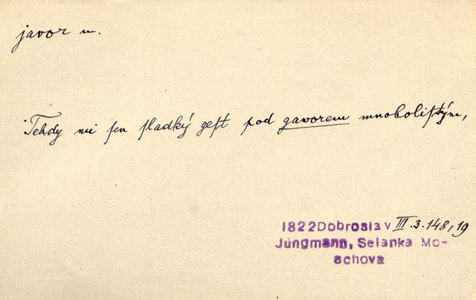 javor m.
Tehdy mi sen sladký gest pod gaworem mnoholistým,
1822 Dobroslav III.3.148,19
Jungmann, Selanka Mo-
schova